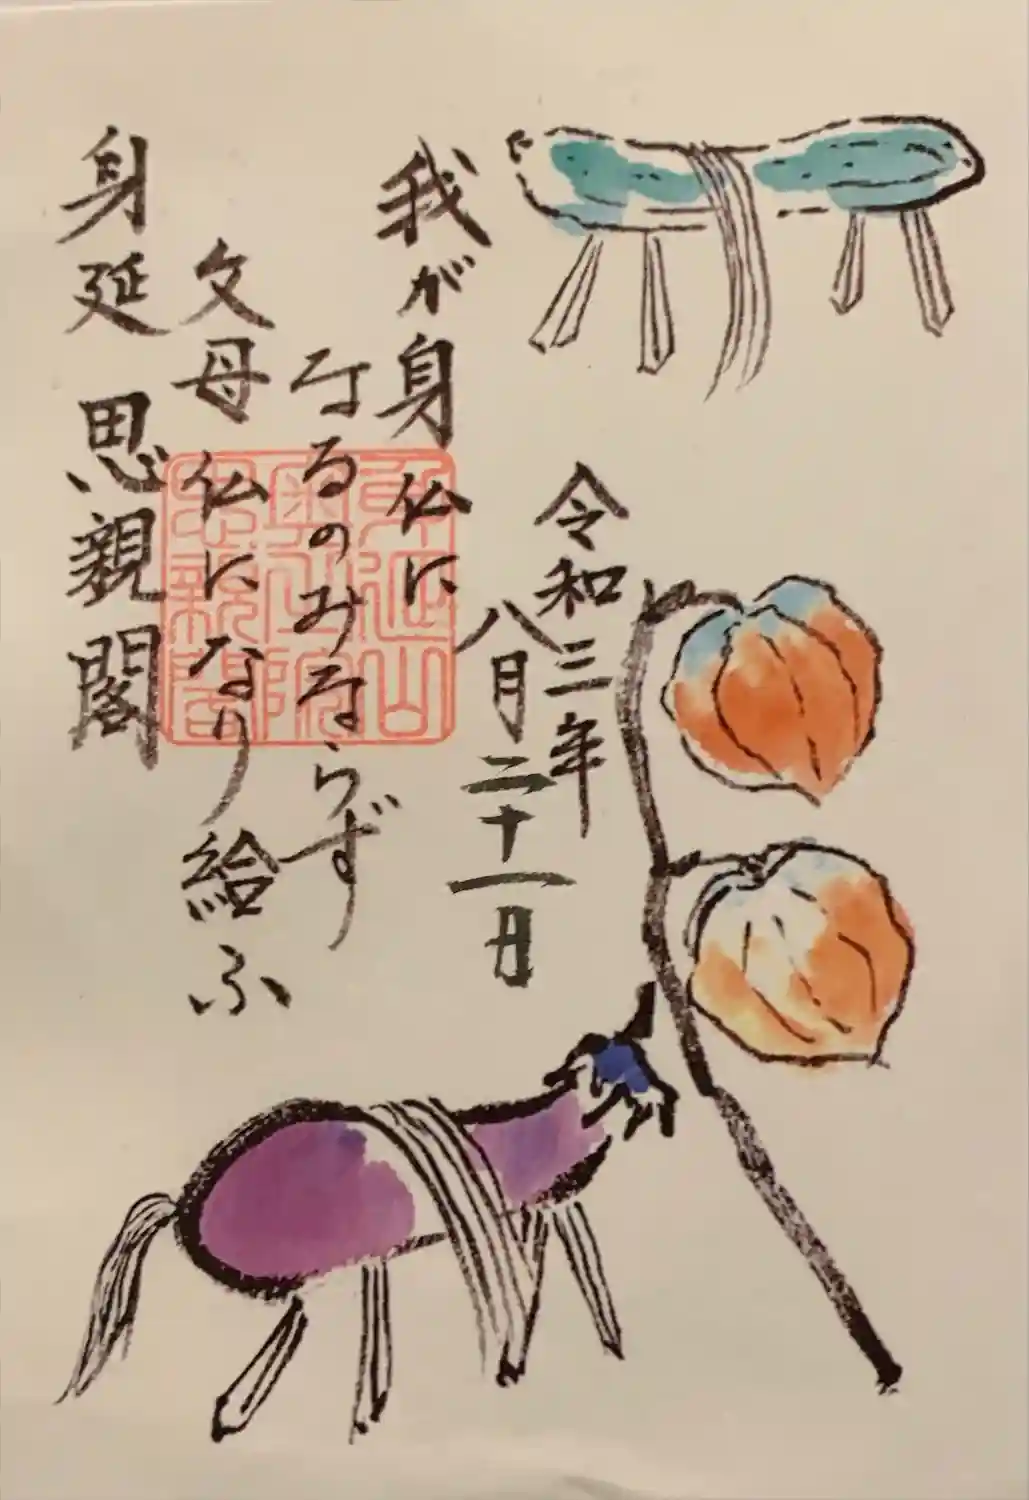 令和三年
八月二十一日
我が身仏に
なるのみならず
父母仏になり給ふ
身延 思親閣
身延山
奥之院
思親閣